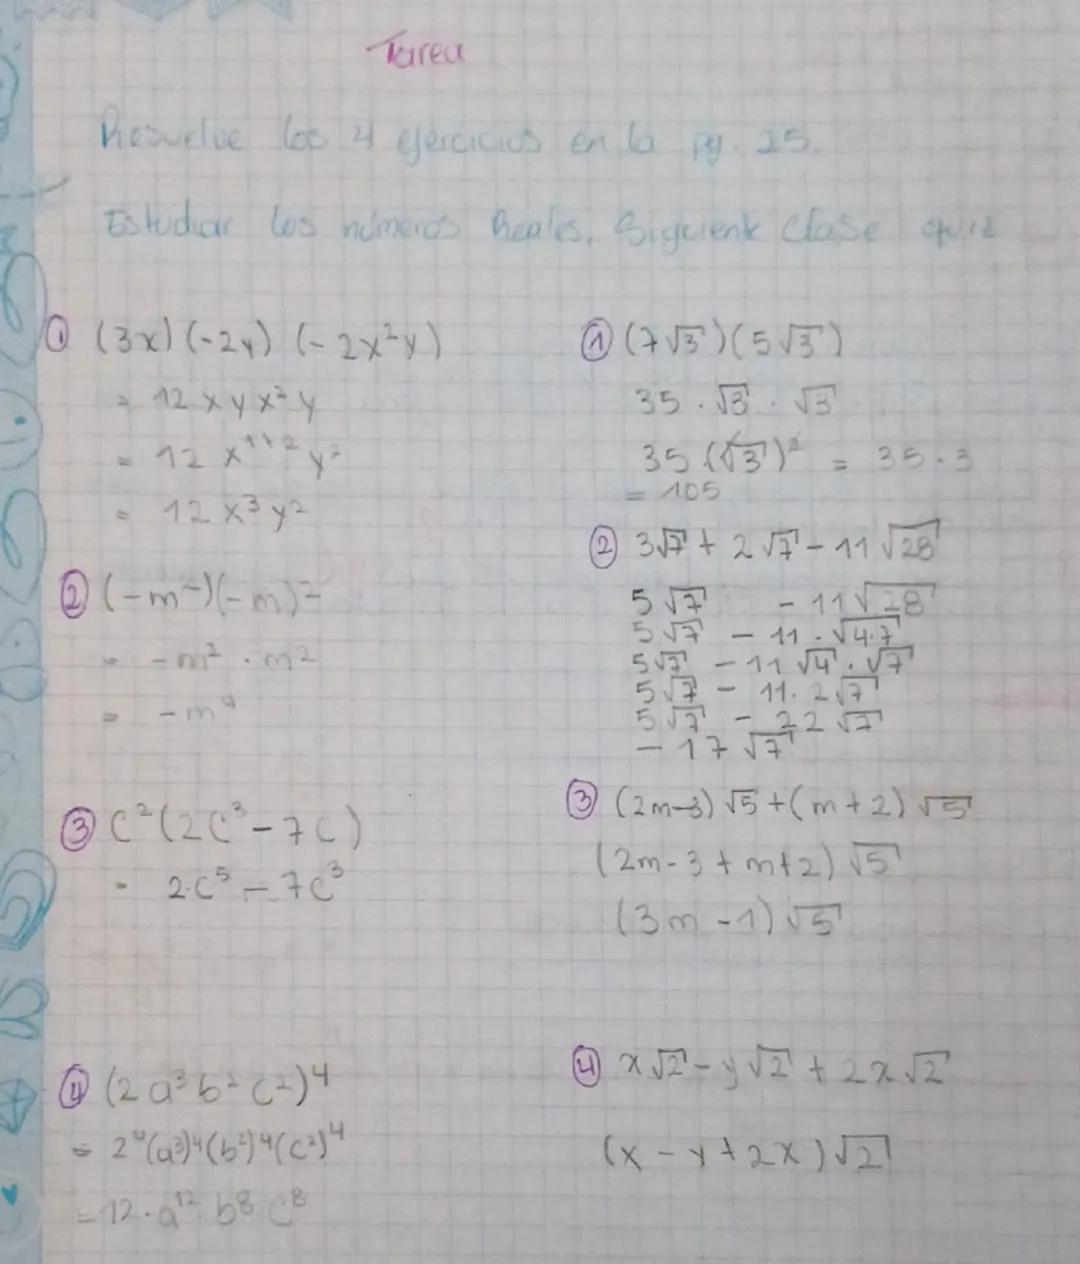 Tarea
Resuelve los 4 ejercicios en la pg. 25.
Estudiar los números Reales. Siguiente clase quiz
① (3x)(-2y)(-2x²y)
= 12xyx²y
= 12x¹⁺²y²
= 12x³y²
② (-m²)(-m)²
= -m² · m²
= -m⁴
③ C²(2C³-7C)
= 2·C⁵-7C³
④ (2a³b²c²)⁴
= 2⁴(a³)⁴(b²)⁴(c²)⁴
= 12·a¹² b⁸ · c⁸
① (7√3)(5√3)
35 · √3 · √3
35 · (√3)² = 35 · 3
= 105
② 3√7 + 2√7 - 11√28
5√7 - 11√28
5√7 - 11 · √4·7
5√7 - 11√4 · √7
5√7 - 11 · 2√7
5√7 - 22√7
- 17√7
③ (2m-3)√5 + (m+2)√5
(2m-3+m+2)√5
(3m-1)√5
④ x√2 - y√2 + 2x√2
(x-y+2x)√2